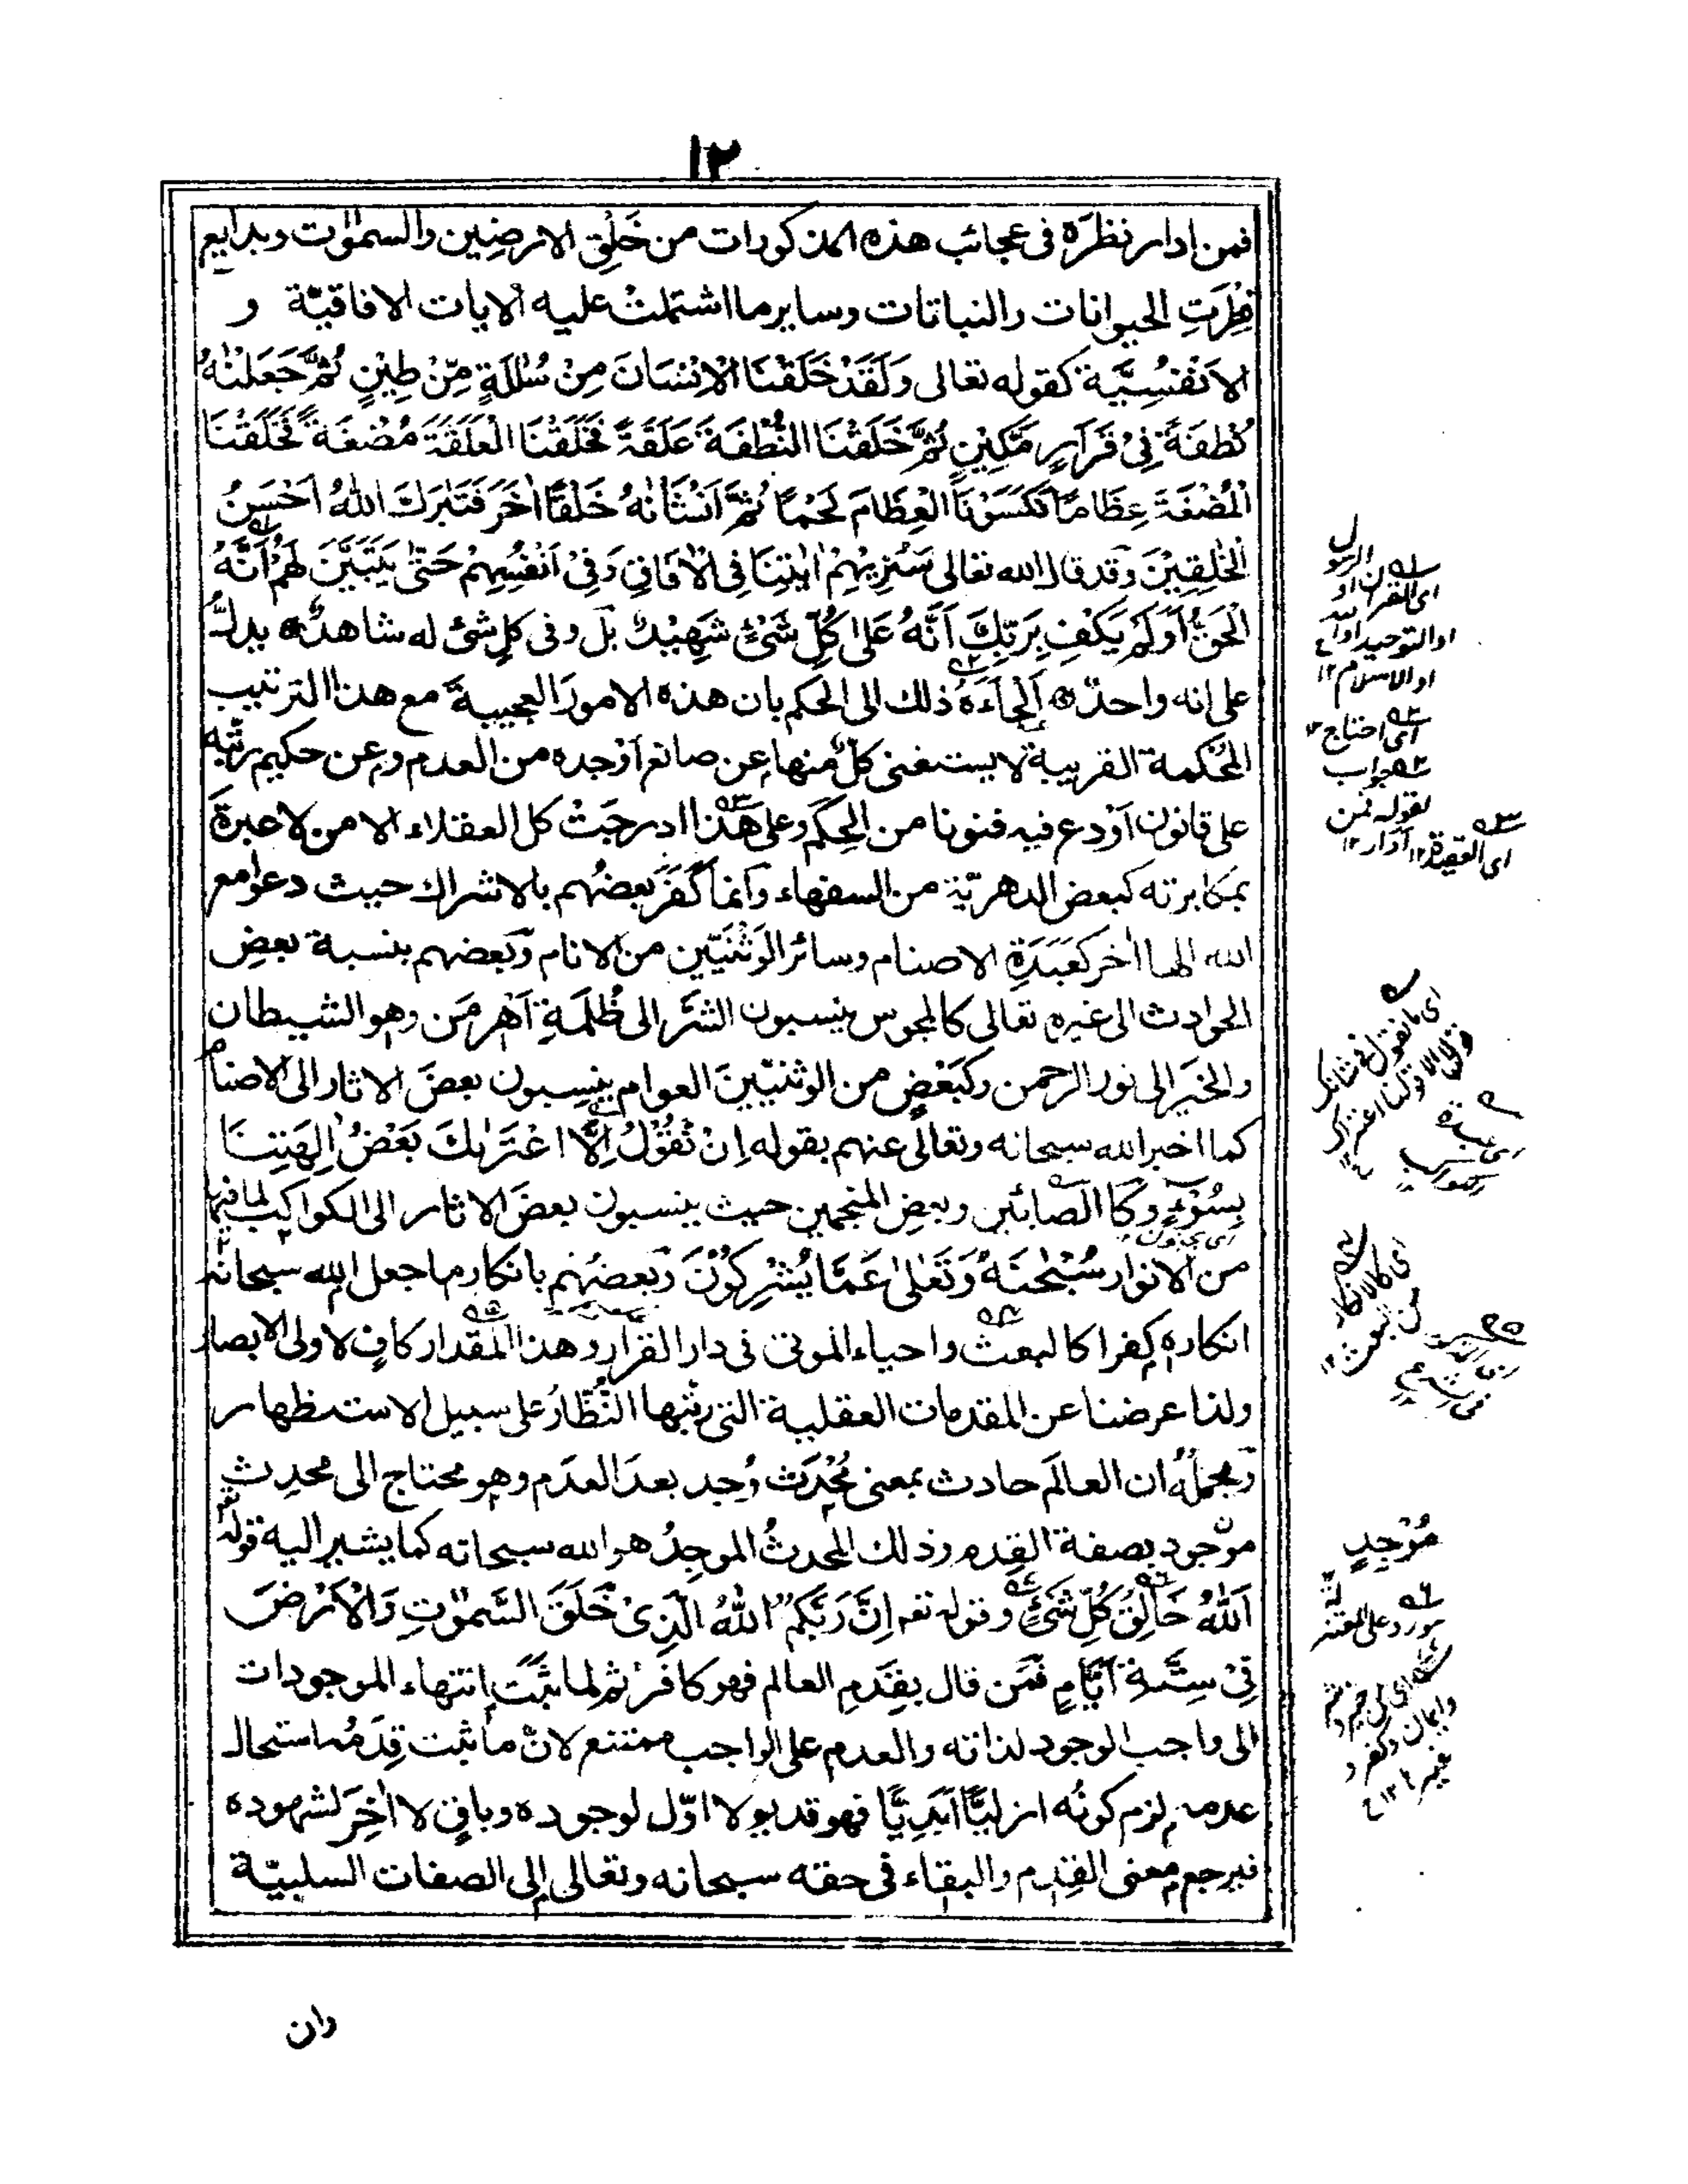 ١٢
فمن ادار نظرَه فى عجائب هذه المذكورات من خَلْقِ الارضِين والسمٰوٰت وبدايع
فِطْرَتِ الحيوانات والنباتات وساير ما اشتملتْ عليه الايات الافاقيّة و
الاَنْفُسِيَّة كقوله تعالى وَلَقَدْ خَلَقْنَا الْاِنْسَانَ مِنْ سُلٰلَةٍ مِّنْ طِيْنٍ ثُمَّ جَعَلْنٰهُ
نُطْفَةً فِىْ قَرَارٍ مَّكِيْنٍ ثُمَّ خَلَقْنَا النُّطْفَةَ عَلَقَةً فَخَلَقْنَا الْعَلَقَةَ مُضْغَةً فَخَلَقْنَا
الْمُضْغَةَ عِظَامًا فَكَسَوْنَا الْعِظَامَ لَحْمًا ثُمَّ اَنْشَانٰهُ خَلْقًا اٰخَرَ فَتَبٰرَكَ اللهُ اَحْسَنُ
الْخٰلِقِيْنَ وقد قال الله تعالى سَنُرِيْهِمْ اٰيٰتِنَا فِى الْاٰفَاقِ وَفِىْ اَنْفُسِهِمْ حَتّٰى يَتَبَيَّنَ لَهُمْ اَنَّهُ
الْحَقُّ اَوَلَمْ يَكْفِ بِرَبِّكَ اَنَّهُ عَلٰى كُلِّ شَىْءٍ شَهِيْدٌ بل وفى كلِ شئ له شاهدٌ يدلُّ
على انه واحدٌ اَلْجَاءَهُ ذلك الى الحكم بان هذه الامورَ العجيبةَ مع هذا الترتيب
المُحْكمة الغريبة لا يستغنى كلٌ منها عن صانع اَوْجده من العدم وعن حكيم رتّبه
على قانون اَوْدع فيه فنونا من الحِكَم وعلى هٰذا درجَتْ كل العقلاء الا من لا عبرةَ
بمكابرته كبعض الدهريّة من السفهاء وانما كَفَرَ بعضُهم بالاشراك حيث دعوا مع
الله الٰها اٰخر كَعَبَدَةِ الاصنام وسائر الوَثْنَيّين من الانام وبَعضهم بنسبة بعضِ
الحوادث الى غيره تعالى كالمجوس ينسبون الشرَّ الى ظُلمةِ اَهْرِمَن وهو الشيطان
والخيرَ الى نور الرحمن وكَبَعْضٍ من الوثنيّينَ العوام ينسِبون بعضَ الاثار الى الاصنام
كما اخبر الله سبحانه وتعالى عنهم بقوله اِنْ نَّقُوْلُ اِلَّا اعْتَرٰىكَ بَعْضُ اٰلِهَتِنَا
بِسُوْءٍ وكا الصّابئين وبعضِ المنجمين حيث ينسبون بعضَ الاثار الى الكواكب لما فيها
من الانوار سُبْحٰنَهُ وَتَعٰلٰى عَمَّا يُشْرِكُوْنَ وبَعضُهم بانكار ما جعل الله سبحانه
انكاره كفرا كالبعث واحياء الموتى فى دار القرار وهذا المقدار كافٍ لاولى الابصار
ولذا عرضنا عن المقدمات العقلية التى رتّبها النُّظّارُ على سبيل الاستظهار
ومجملُهُ ان العالَم حادث بمعنى مُحْدَث وُجِد بعدَ العدَم وهو محتاج الى محدِث
موْجود بصفة القِدم وذلك المحدثُ الموجِدُ هو الله سبحانه كما يشير اليه قوله
اَللهُ خَالِقُ كُلِّ شَىْءٍ وقوله تعه اِنَّ رَبَّكُمُ اللهُ الَّذِىْ خَلَقَ السَّمٰوٰتِ وَالْاَرْضَ
فِىْ سِتَّةِ اَيَّامٍ فمَن قال بقِدَمِ العالم فهو كافر ثم لما ثبَت انتهاء الموجودات
الى واجب الوجود لذاته والعدم على الواجب ممتنع لانّ ما ثبت قِدَمُه استحال
عدمه لزم كونُه ازليًّا اَبَدِيًّا فهو قديم لا اوّل لوجوده وباقٍ لا اٰخِرَ لشهوده
فيرجع معنى القِدم والبقاء فى حقه سبحانه وتعالى الى الصفات السلبيّة
اى القران او الرسول
او التوحيد او الله
او الاسلام ١٢
اى احتاج ١٢
جواب
لقوله فمن
ادار ١٢
اى العقيدة ١٢
مُوْجِدٍ
وان